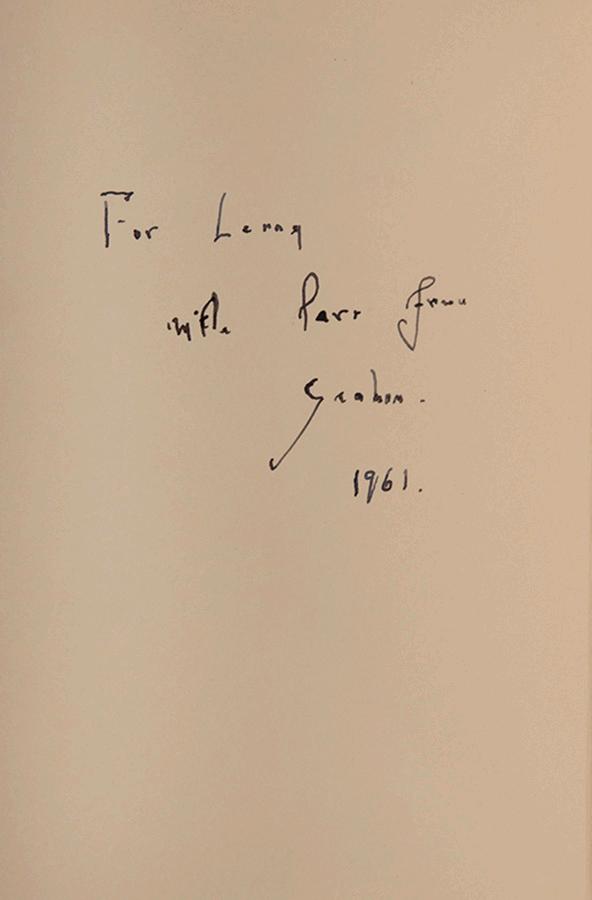 For Lenny
with love from
Graham.
1961.